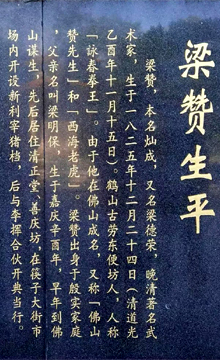 梁赞生平
梁赞，本名灿成，又名梁德荣，晚清著名武
术家，生于一八二五年十二月二十四日（清道光
乙酉年十一月十五日）。鹤山古劳东便坊人，人称
「詠春拳王」。由于他在佛山成名，又称「佛山
赞先生」和「西海老虎」。梁赞出身于殷实家庭
，父亲名叫梁明保，生于嘉庆辛酉年，早年到佛
山谋生，先后居住清正堂、善庆坊，在筷子大街市
场内开设新利宰猪档，后与李挥合伙开典当行。